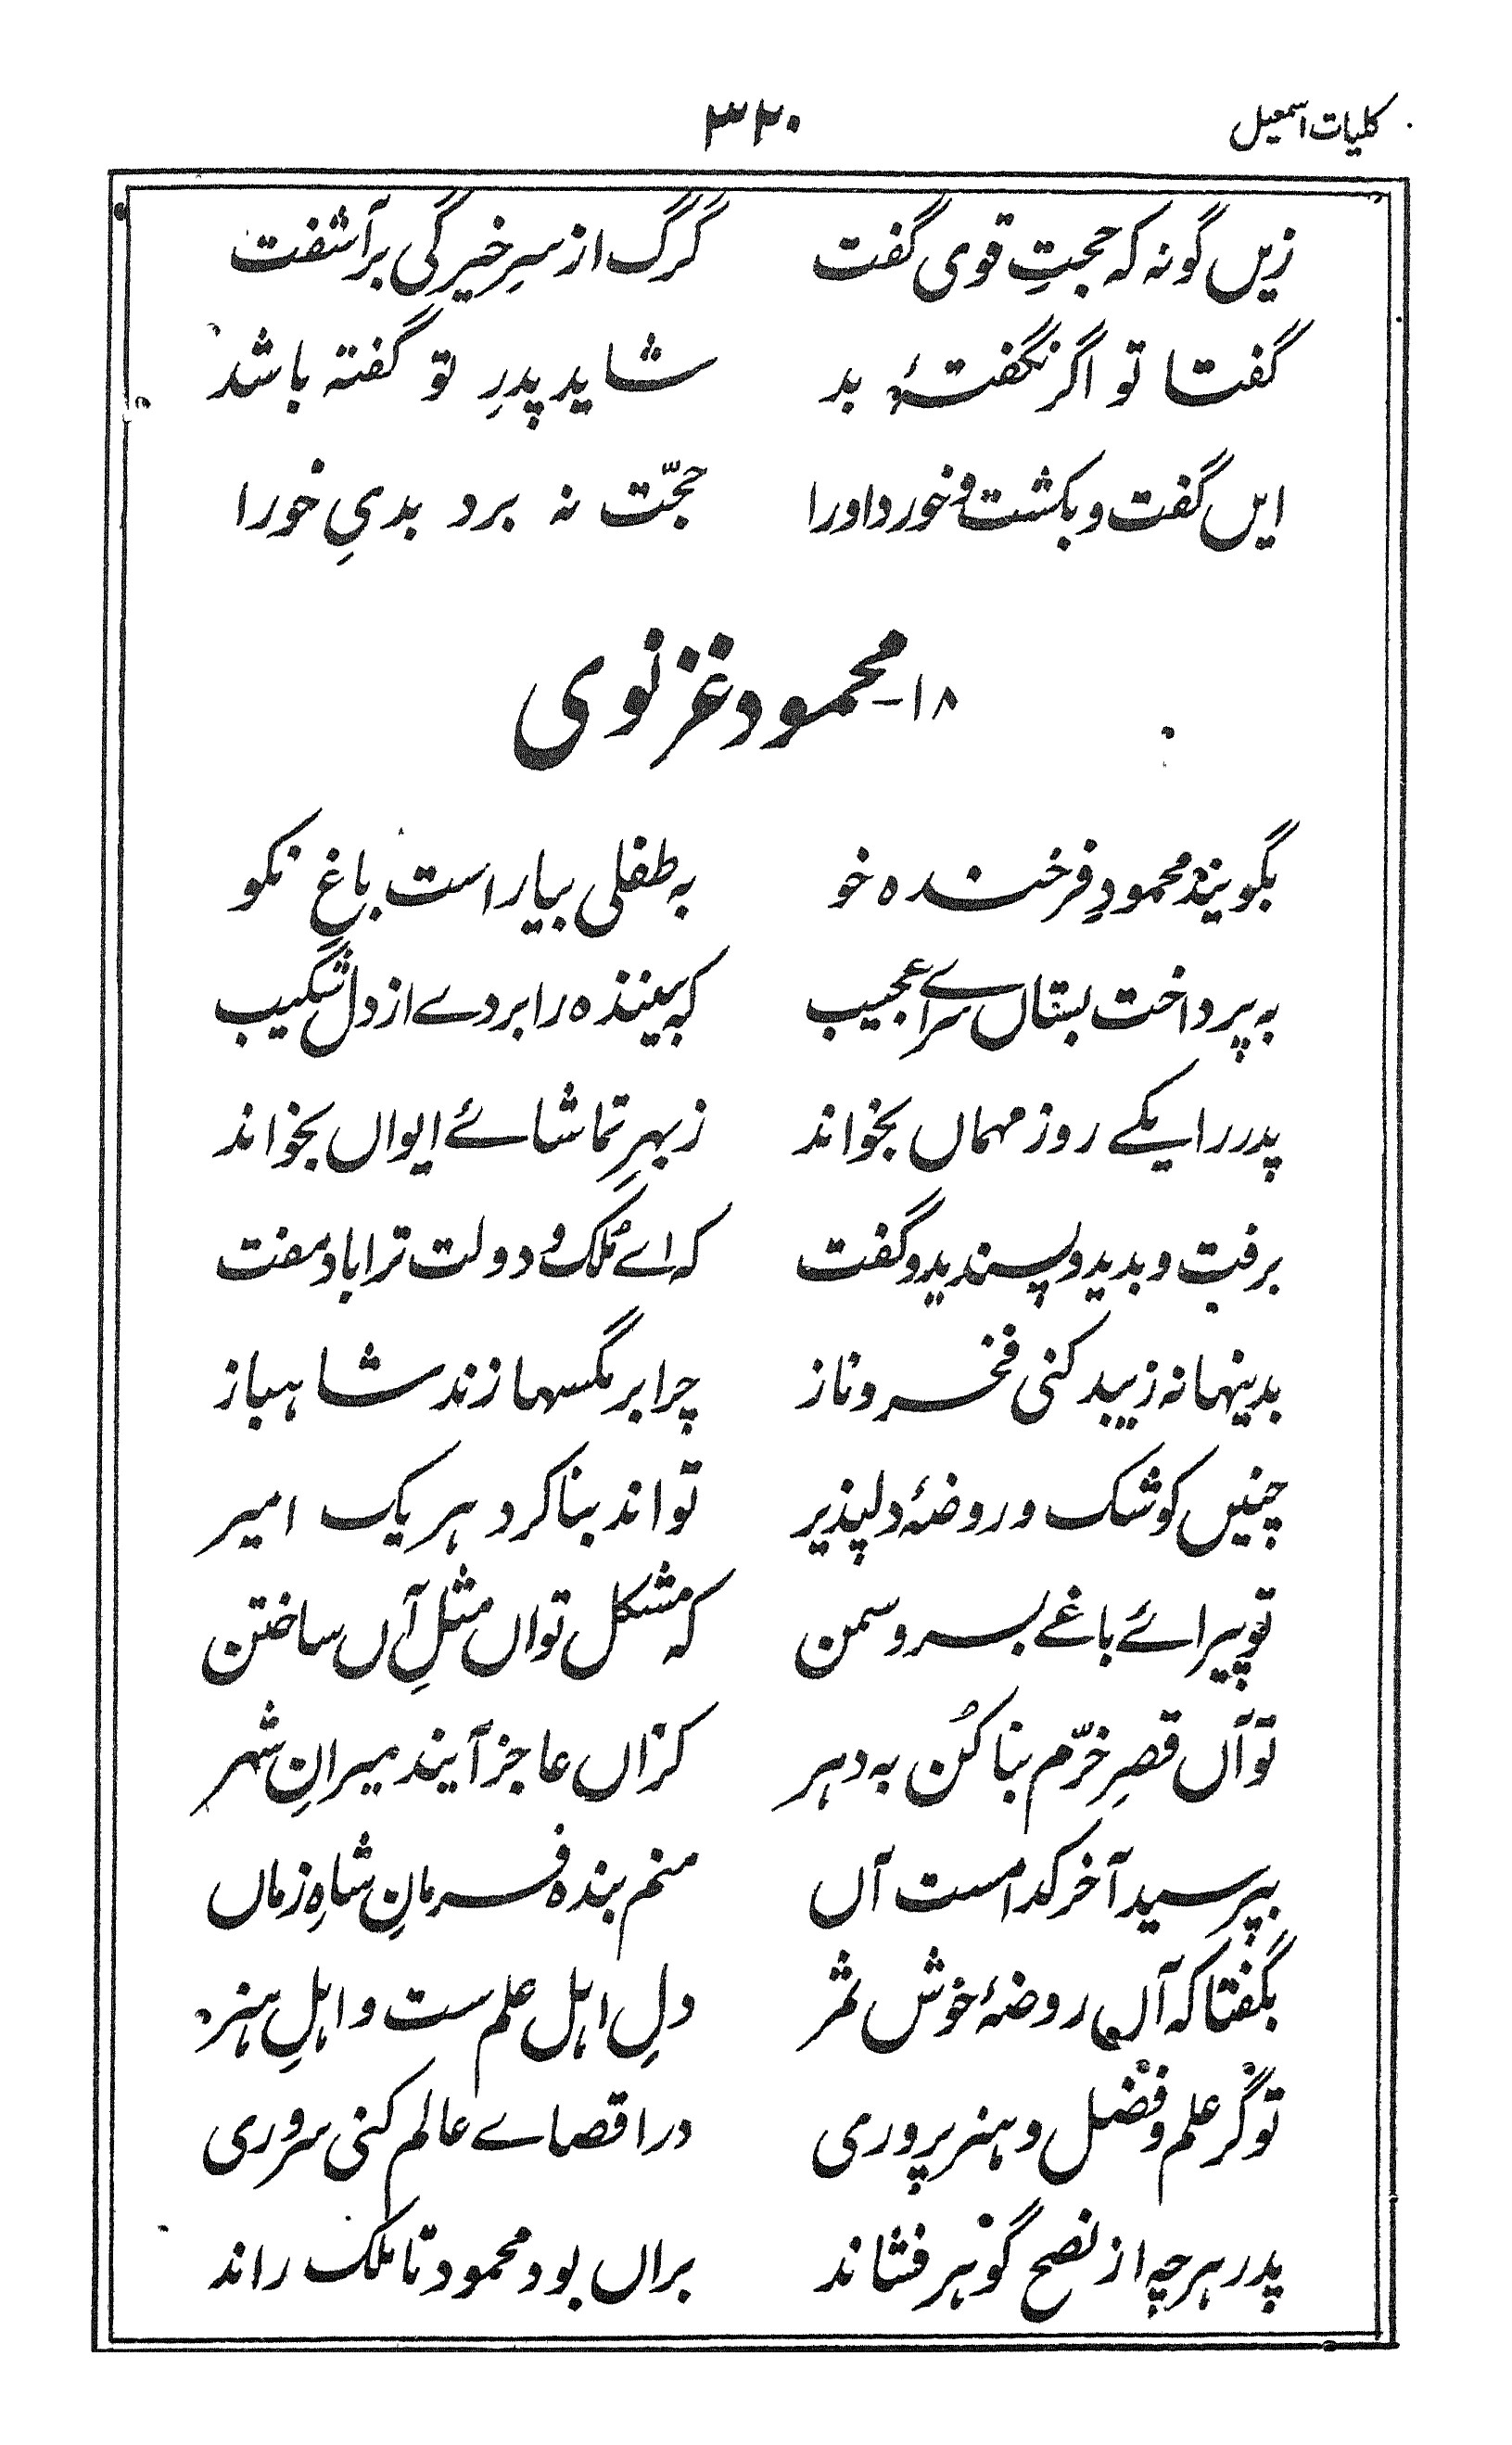 کلیات اسمعیل ۳۲۰
زیں گونہ کہ حجتِ قوی گفت گرگ از سرِ خیرگی برآشفت
گفتا تو اگر نگفتۂ بد شاید پدرِ تو گفتہ باشد
ایں گفت و بکشت و خورد اورا حجّت نہ برد بدیِ خورا
۱۸- محمود غزنوی
بگویند محمودِ فرخندہ خو بہ طفلی بیاراست باغِ نکو
بہ پرداخت بستاں سراے عجیب کہ بینندہ را بردے از دل شکیب
پدر را یکے روز مہماں بخواند ز بہرِ تماشائے ایواں بخواند
برفت و بدید و پسندید و گفت کہ اے مُلک و دولت ترا باد مفت
بدینہا نہ زیبد کنی فخر و ناز چرا بر مگسہا زند شاہباز
چنیں کوشک و روضۂ دلپذیر تواند بنا کرد ہر یک امیر
تو پیرائے باغے بسرو سمن کہ مشکل تواں مثلِ آں ساختن
تو آں قصرِ خرّم بنا کُن بہ دہر کزاں عاجز آیند میرانِ شہر
بپرسید آخر کدامست آں منم بندہ فرمانِ شاہِ زماں
بگفتا کہ آں روضۂ خوش ثمر دلِ اہل علم ست و اہلِ ہنر
تو گر علم و فضل و ہنر پروری در اقصاے عالم کنی سروری
پدر ہرچہ از نصح گوہر فشاند براں بود محمود تا ملک راند